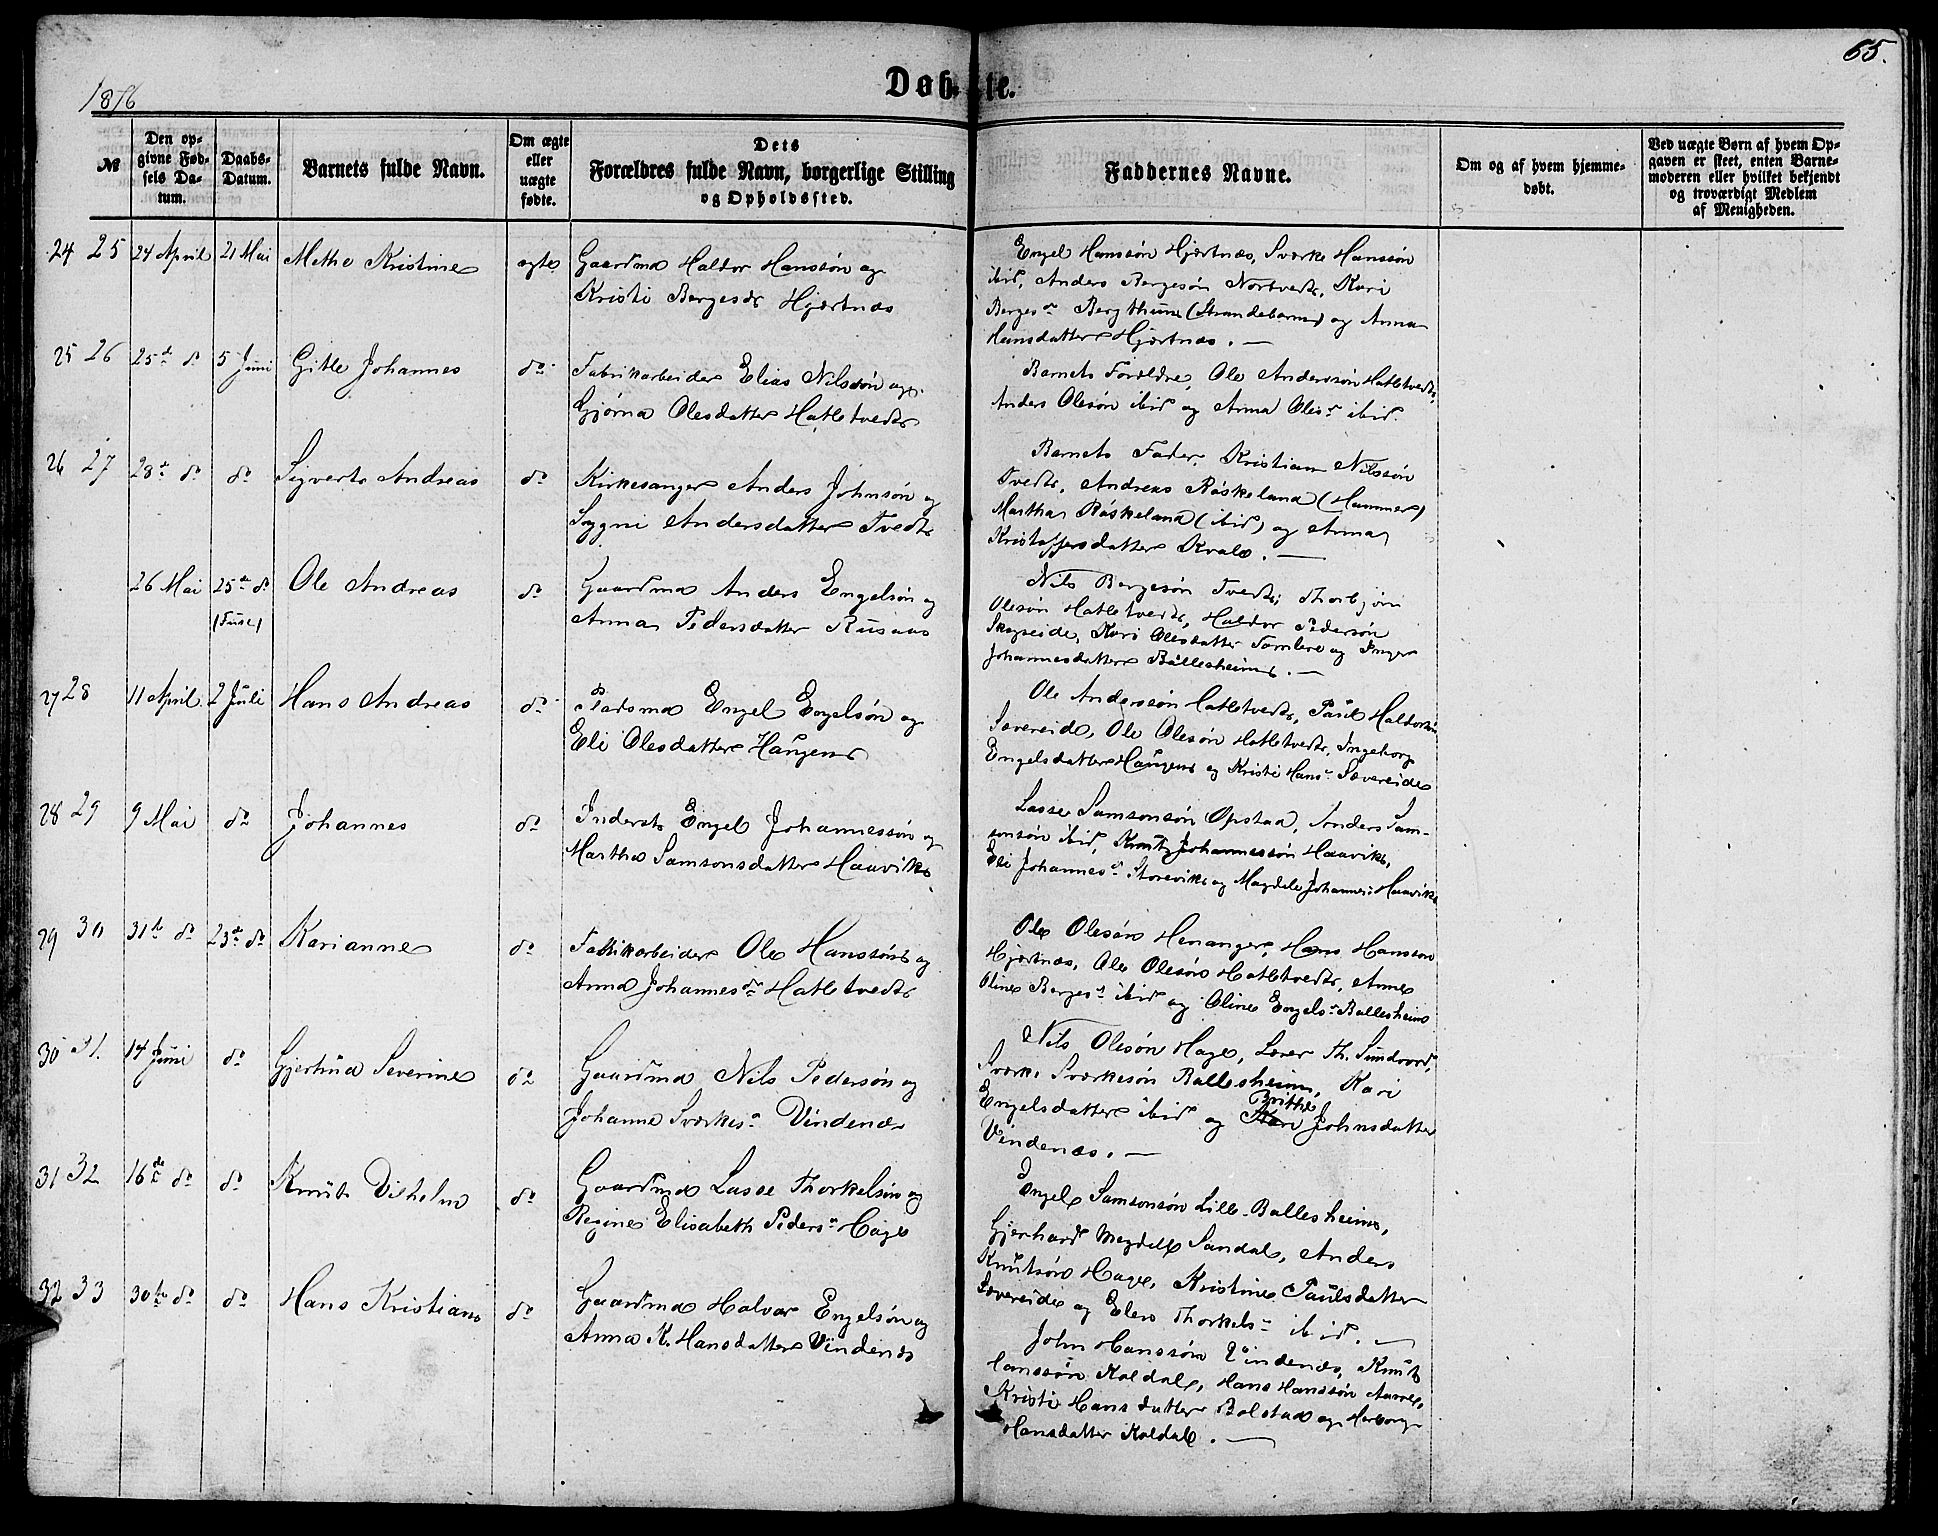 65.
1876
Døbte.
№
Den op-
givne Fød-
sels Da-
tum.
Daabs-
Datum.
Barnets fulde Navn.
Om ægte
eller
uægte
fødte.
Dets
Forældres fulde Navn, borgerlige Stilling
og Opholdssted.
Faddernes Navne.
Om og af hvem hjemme-
døbt.
Ved uægte Børn af hvem Op-
gaven er skeet, enten Barne-
moderen eller hvilket bekjendt
og troværdigt Medlem
af Menigheden.
24 25 24 April 21 Mai Methe Kristine ægte Gaardmd Haldor Hanssøn og
Kristi Bergesdr Hjærtnæs
Engel Hanssøn Hjærtnæs, Sværke Hanssøn
ibid, Anders Bergesøn Nortvedt, Kari
Berges Bergthun (Strandebarm) og Anna
Hansdatter Hjærtnæs. —
25 26 25de do 5 Juni Gitle Johannes do Fabrikarbeider Elias Nilssøn og
Gjørna Olesdatter Hatletvedt
Barnets Foreldre, Ole Anderssøn Hatletvedt,
Anders Olesøn ibid og Anna Oles ibid.
26 27 28de do do Sigvert Andreas do Kirkesanger Anders Johnsøn og
Sygni Andersdatter Tvedt
Barnets Fader, Kristian Nilssøn
Tvedt, Andreas Röskeland (Hammer)
Martha Röskeland (ibid) og Anna
Kristoffersdatter Kvale. —
26 Mai 25de do (Fuse) Ole Andreas do Gaardmd Anders Engelsøn og
Anna Pedersdatter Rusaas
Nils Bergesøn Tvedt, Thorbjørn
Olesøn Hatletvedt, Haldor Pedersøn
Skogseide, Kari Olesdatter Tomlere og Inger
Johannesdatter Ballesheim. —
27 28 11 April 2 Juli Hans Andreas do Pladsmd Engel Engelsøn og
Eli Olesdatter Haugen
Ole Anderssøn Hatletvedt, Paul Haldorsøn
Sævereide, Ole Olesøn Hatletvedt, Ingeborg
Engelsdatter Haugen og Kristi Hans Sævereide
28 29 9 Mai do Johannes do Inderst Engel Johannessøn og
Martha Samsonsdatter Haavik
Lasse Samsonsøn Opstad, Anders Sam-
sonsøn ibid, Knut Johannessøn Haavik,
Eli Johannes Storevik og Magdele Johannes Haavik
29 30 31te do 23de do Karianne do Fabrikarbeider Ole Hanssøn og
Anna Johannesdr Hatletvedt
Ole Olesøn Henanger, Hans Hanssøn
Hjærtnæs, Ole Olesøn Hatletvedt, Anne
Oline Berges ibid og Oline Engels Ballesheim
30 31. 14 Juni do Gjertrud Severine do Gaardmd Nils Pedersøn og
Johanne Sværkes Vindenæs
Nils Olesøn Hage, Lærer Th. Sundvord,
Sværke Sværkesøn Ballesheim, Kari
Engelsdatter ibid og Brithe Johnsdatter
Vindenæs. —
31 32 16de do do Knut Vilhelm do Gaardmd Lasse Thorkelsøn og
Regine Elisabeth Peders Hage
Engel Samsonsøn Lille-Ballesheim,
Gjerhard Magdele Sandal, Anders
Knutsøn Hage, Kristine Paulsdatter
Sævereide og Elen Thorkels ibid. —
32 33 30te do do Hans Kristian do Gaardmd Halvor Engelsøn og
Anna K. Hansdatter Vindenæs
John Hanssøn Vindenæs, Knut
Hanssøn Koldal, Hans Hanssøn
Kristi Hansdatter Bolstad og Herborg
Hansdatter Koldal. —